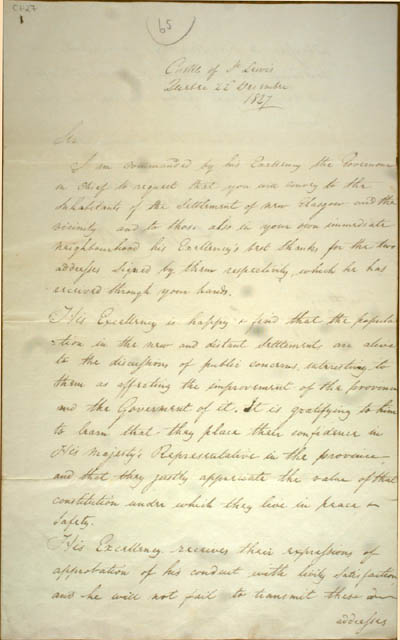 C127
1
65
Castle of St Lewis
Quebec 22d December
1827
Sir
I am commanded by his Excellency the Governor
in Chief to request that you will convey to the
Inhabitants of the Settlement of new Glasgow and the
vicinity and to those also in your own immediate
neighbourhood his Excellency's best thanks for the two
addresses signed by them respectively which he has
received through your hands.
His Excellency is happy to find that the popula
tion in the new and distant Settlement are alive
to the discussions of public concerns interesting to
them as affecting the improvement of the province
and the Goverment of it. It is gratifying to him
to learn that they place their confidence in
His Majesty's Representative in the province
and that they justly appreciate the value of that
constitution under which they live in peace &
Safety.
His Excellency receives their expressions of
approbation of his conduct with lively satisfaction
and he will not fail to transmit these
addresses